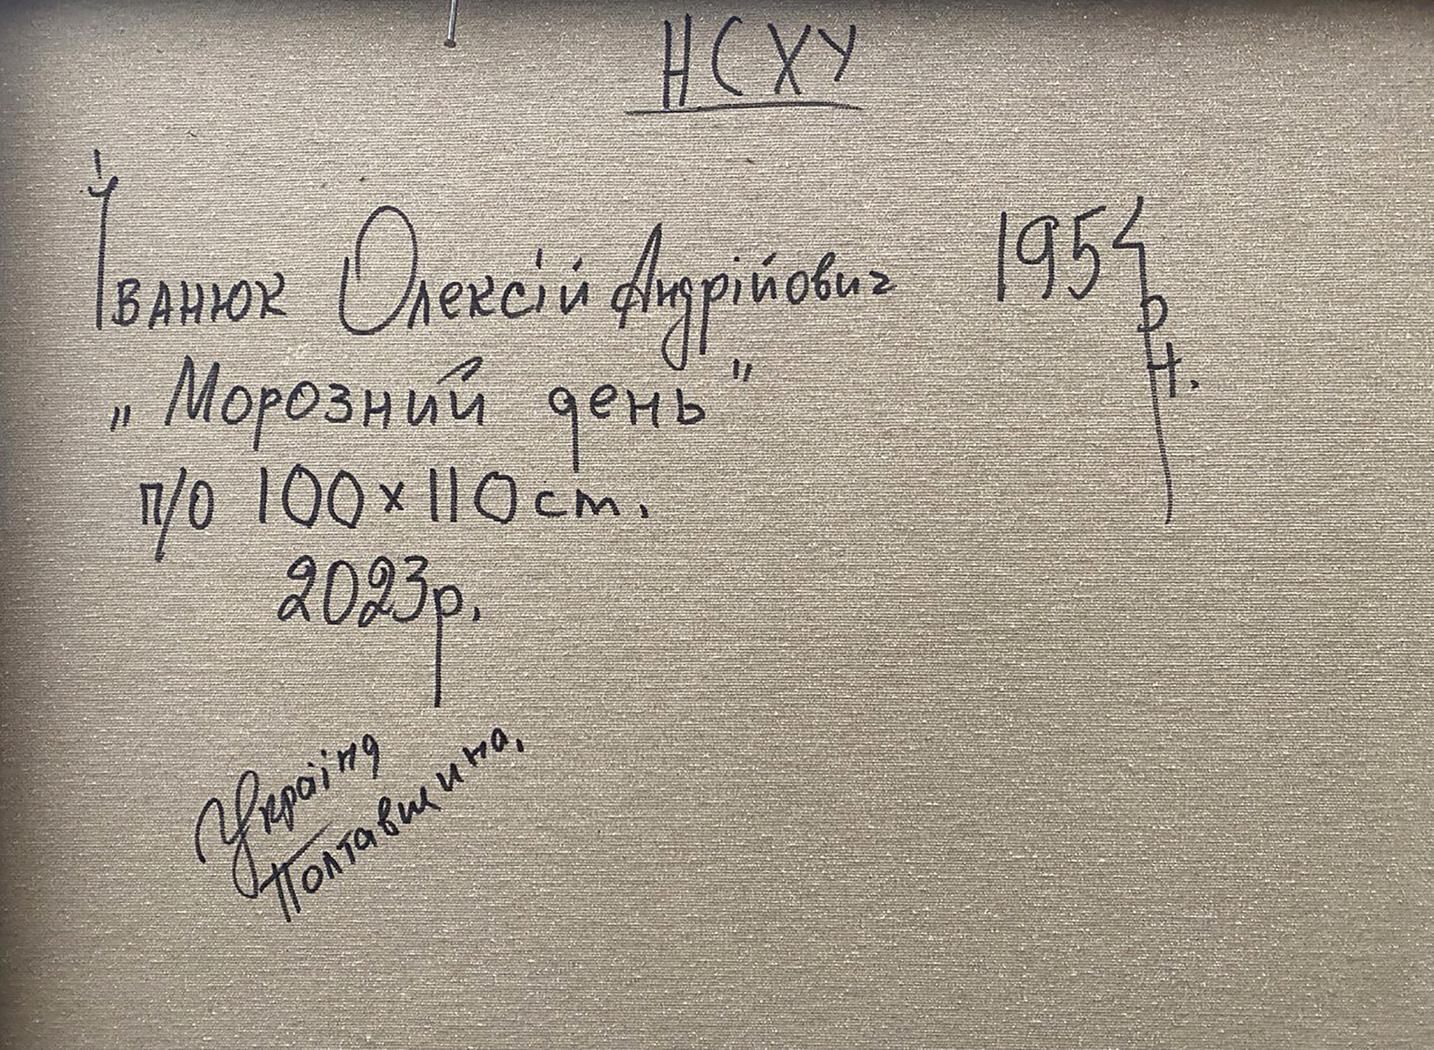 НСХУ
Іванюк Олексій Андрійович 1954
р
н.
„Морозний день"
п/о 100х110 ст.
2023р.
Україна
Полтавщина.